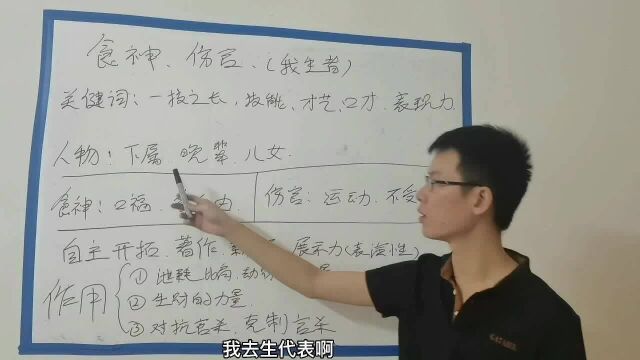 食神、伤官、(我生者)
关键词：一技之长，技能、才艺、口才、表现力
人物：下属 晚辈、儿女.
食神：口福、 由 伤官：运动、不受
自主开拓、著作、 展示力(表演性)
作用 ①泄耗比肩、动
②生财的力量.
③对抗官杀、克制官杀
我去生代表啊